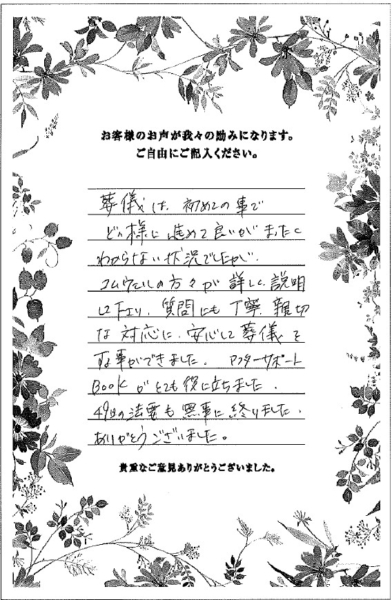 お客様のお声が我々の励みになります。
ご自由にご記入ください。
葬儀は、初めての事で
どの様に進めて良いかまったく
わからない状況でしたが、
コムウェルの方々が詳しく説明
して下さり、質問にも丁寧、親切
な対応に、安心して葬儀を
事ができました。アフターサポート
BOOKがとても役に立ちました。
49日の法要も無事に終りました。
ありがとうございました。
貴重なご意見ありがとうございました。